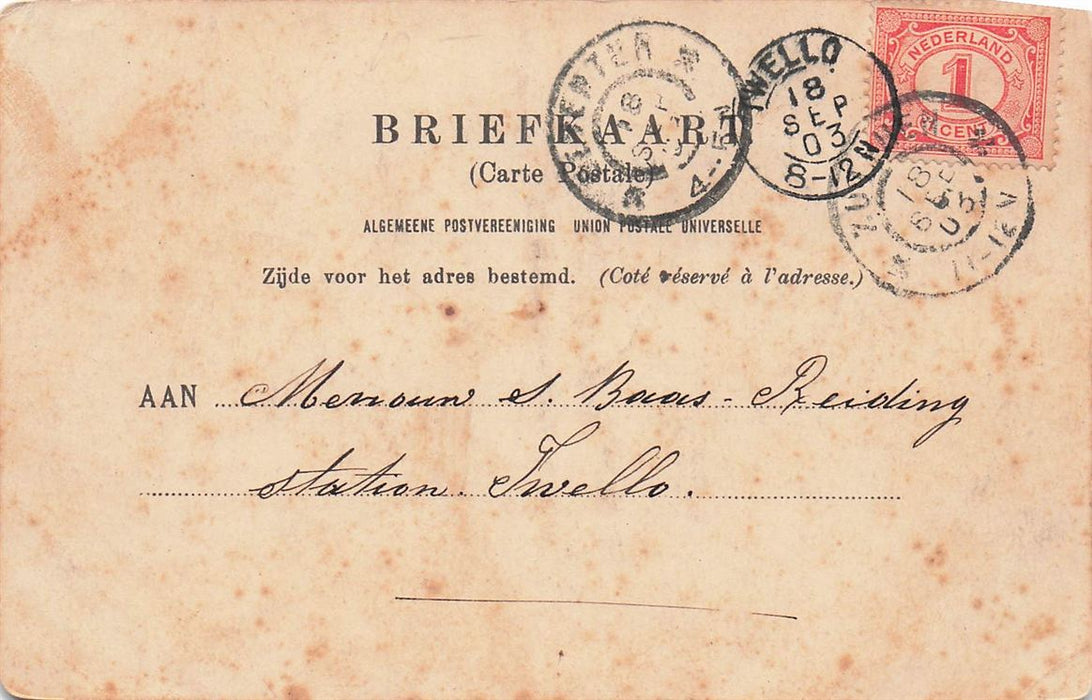 NEDERLAND
1
CENT
DEVENTER
18
SEP
4-5N
TWELLO
18
SEP
03
8-12N
18
SEP
03
11-12V
BRIEFKAART
(Carte Postale)
ALGEMEENE POSTVEREENIGING UNION POSTALE UNIVERSELLE
Zijde voor het adres bestemd. (Coté réservé à l'adresse.)
AAN Mevrouw S. Baas-Reiding
station. Twello.